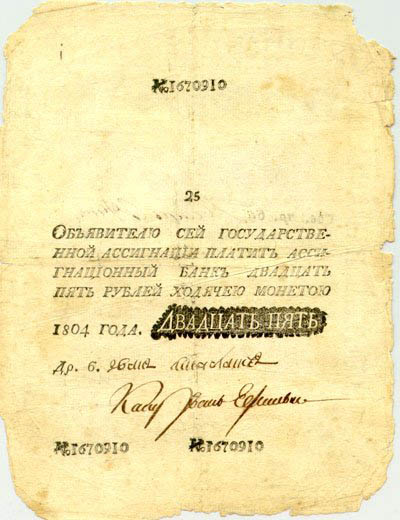 №1670910
25
Объявителю сей государстве-
нной ассигнаціи платитъ асси-
гнаціонный банкъ двадцать
пять рублей ходячею монетою
1804 года. Двадцать пять
Др. б.
№1670910 №1670910